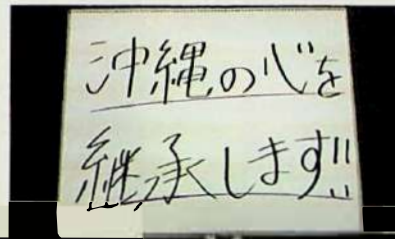 沖縄の心を
継承します!!